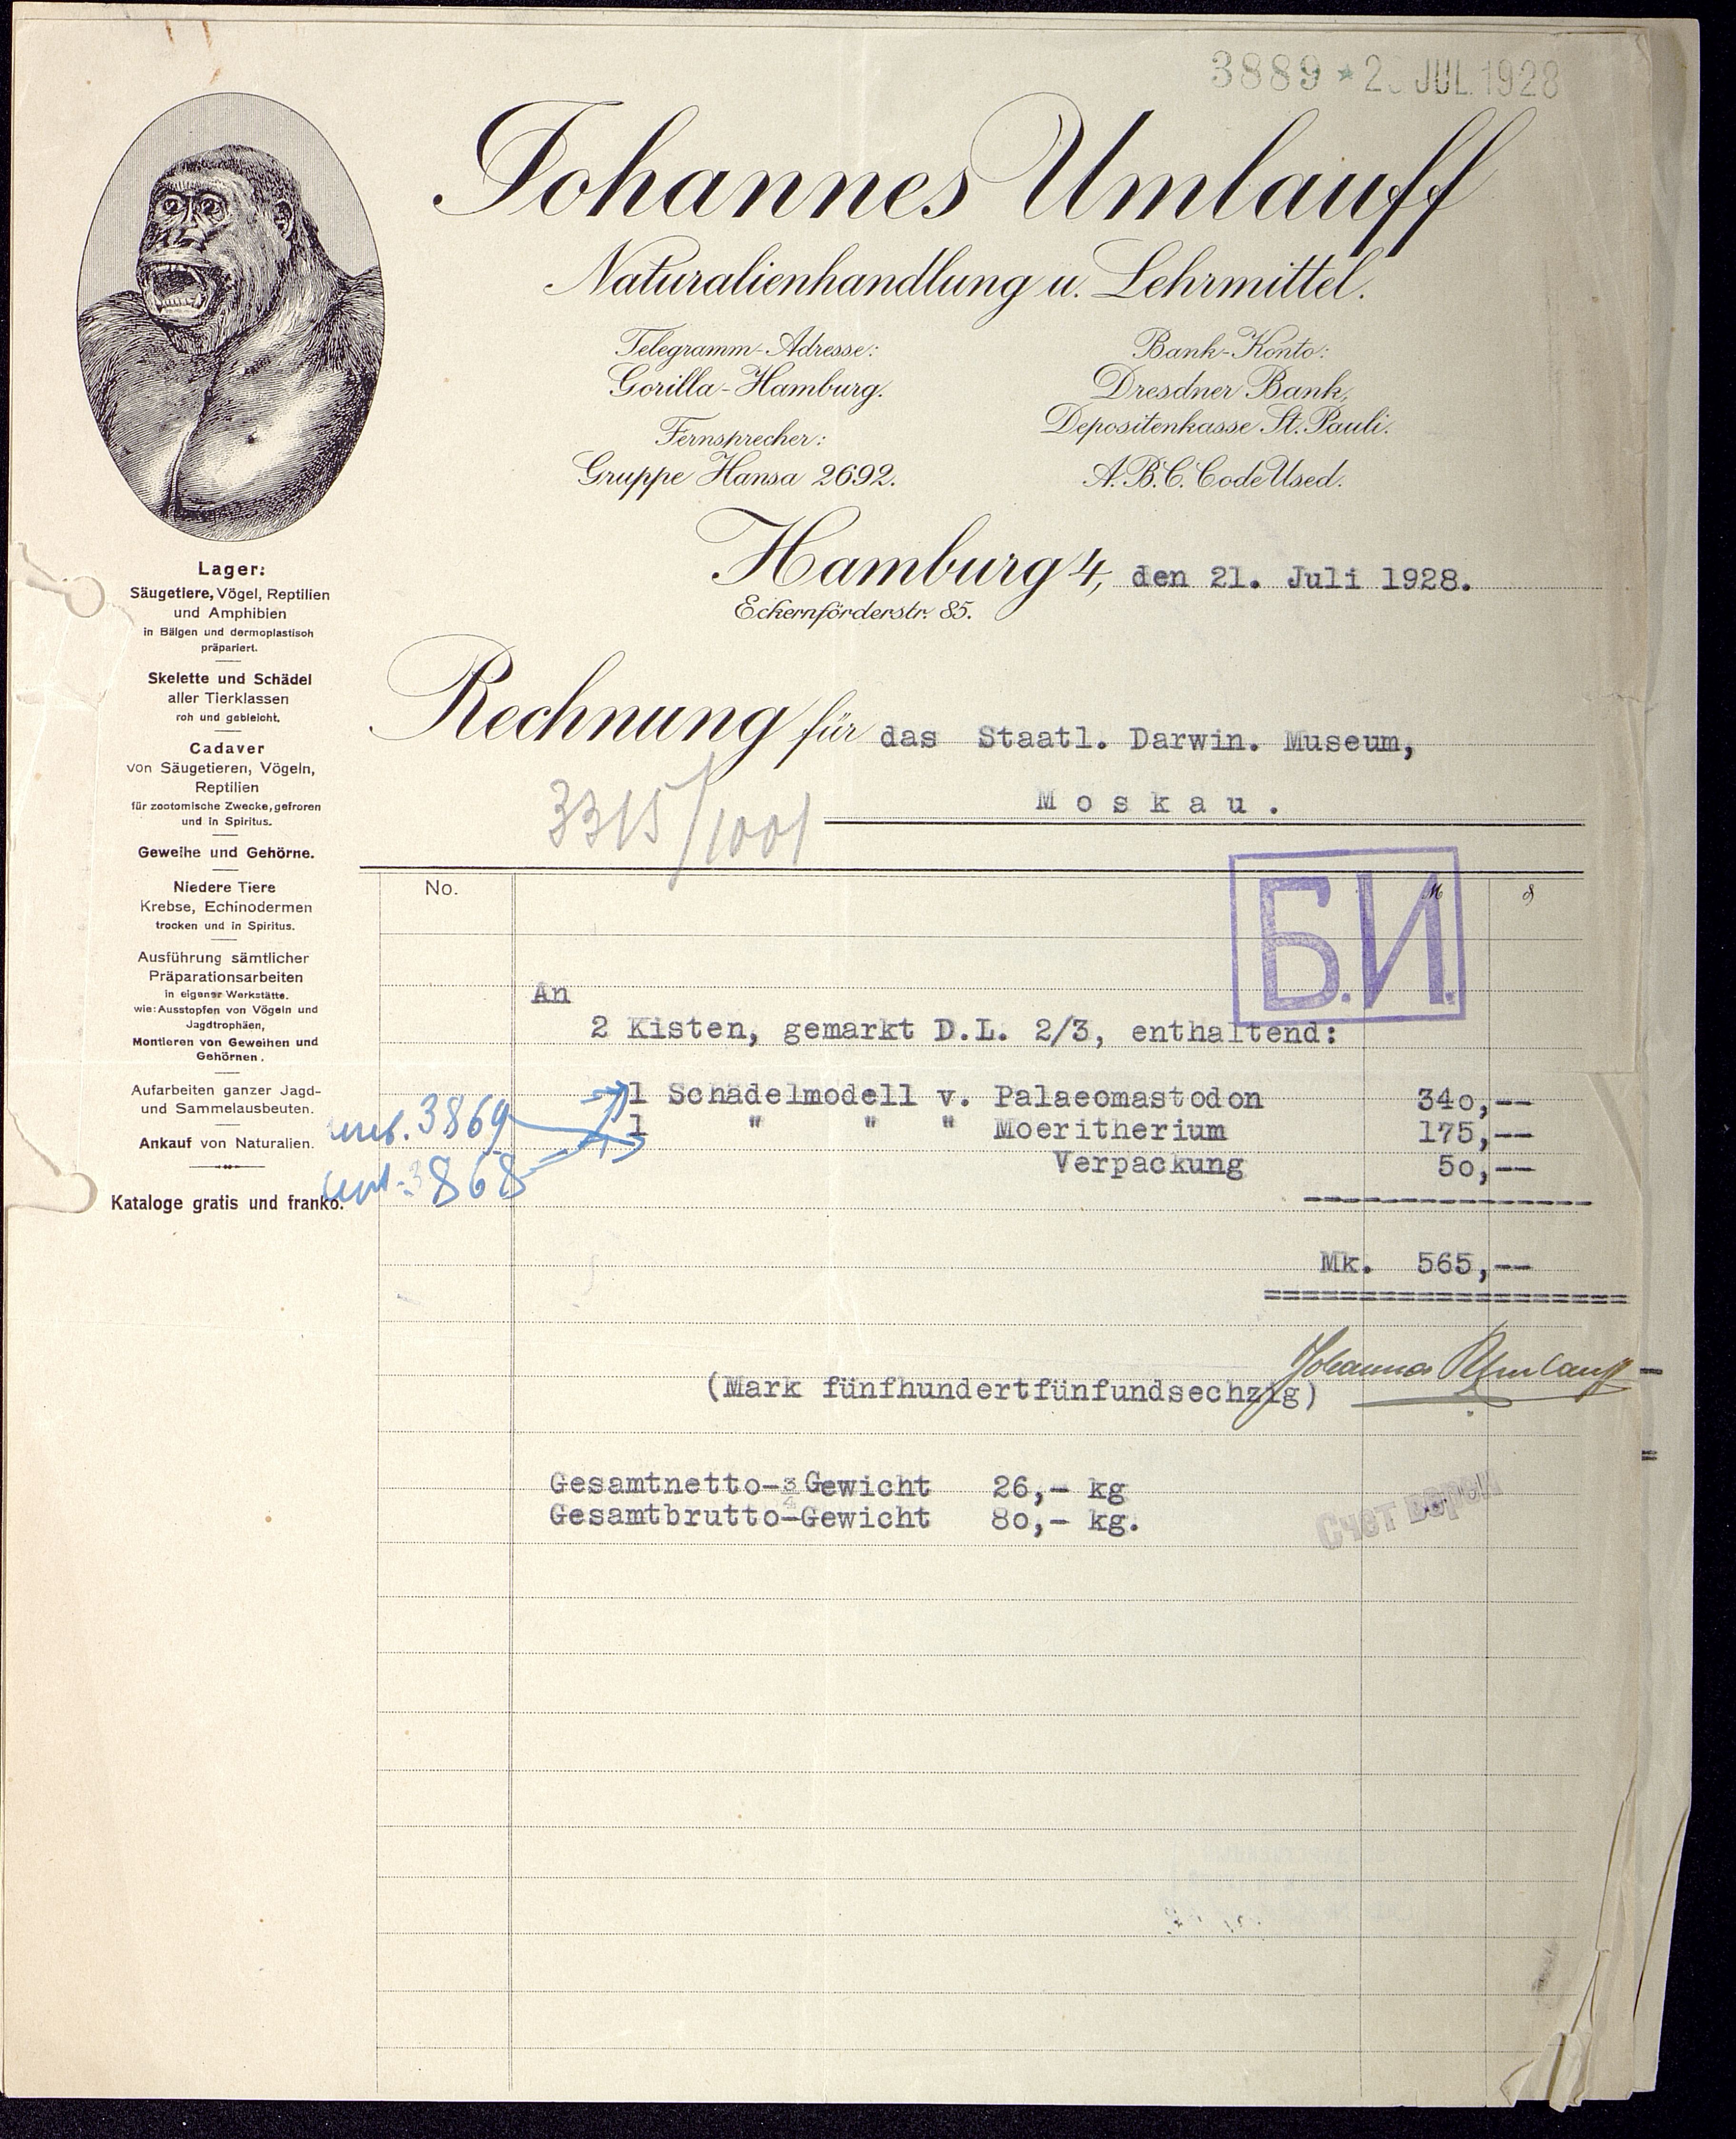 3889 * 2 JUL. 1928
Johannes Umlauff
Naturalienhandlung u. Lehrmittel.
Telegramm-Adresse:
Gorilla-Hamburg.
Fernsprecher:
Gruppe Hansa 2692.
Bank-Konto:
Dresdner Bank,
Depositenkasse St. Pauli.
A.B.C. Code Used.
Hamburg 4, den 21. Juli 1928.
Eckernförderstr. 85.
Lager:
Säugetiere, Vögel, Reptilien
und Amphibien
in Bälgen und dermoplastisch
präpariert.
Skelette und Schädel
aller Tierklassen
roh und gebleicht.
Cadaver
von Säugetieren, Vögeln,
Reptilien
für zootomische Zwecke, gefroren
und in Spiritus.
Geweihe und Gehörne.
Niedere Tiere
Krebse, Echinodermen
trocken und in Spiritus.
Ausführung sämtlicher
Präparationsarbeiten
in eigener Werkstätte.
wie: Ausstopfen von Vögeln und
Jagdtrophäen,
Montieren von Geweihen und
Gehörnen.
Aufarbeiten ganzer Jagd-
und Sammelausbeuten.
Ankauf von Naturalien.
Kataloge gratis und franko.
Rechnung für das Staatl. Darwin. Museum,
Moskau.
3315/1001
No.
M
Б.И.
An
2 Kisten, gemarkt D.L. 2/3, enthaltend:
1 Schädelmodell v. Palaeomastodon 340,--
1 " " " Moeritherium 175,--
Verpackung 50,--
3869
3868
Mk. 565,--
Johannes Umlauff
(Mark fünfhundertfünfundsechzig)
Gesamtnetto-Gewicht 26,- kg
Gesamtbrutto-Gewicht 80,- kg.
Счет верен